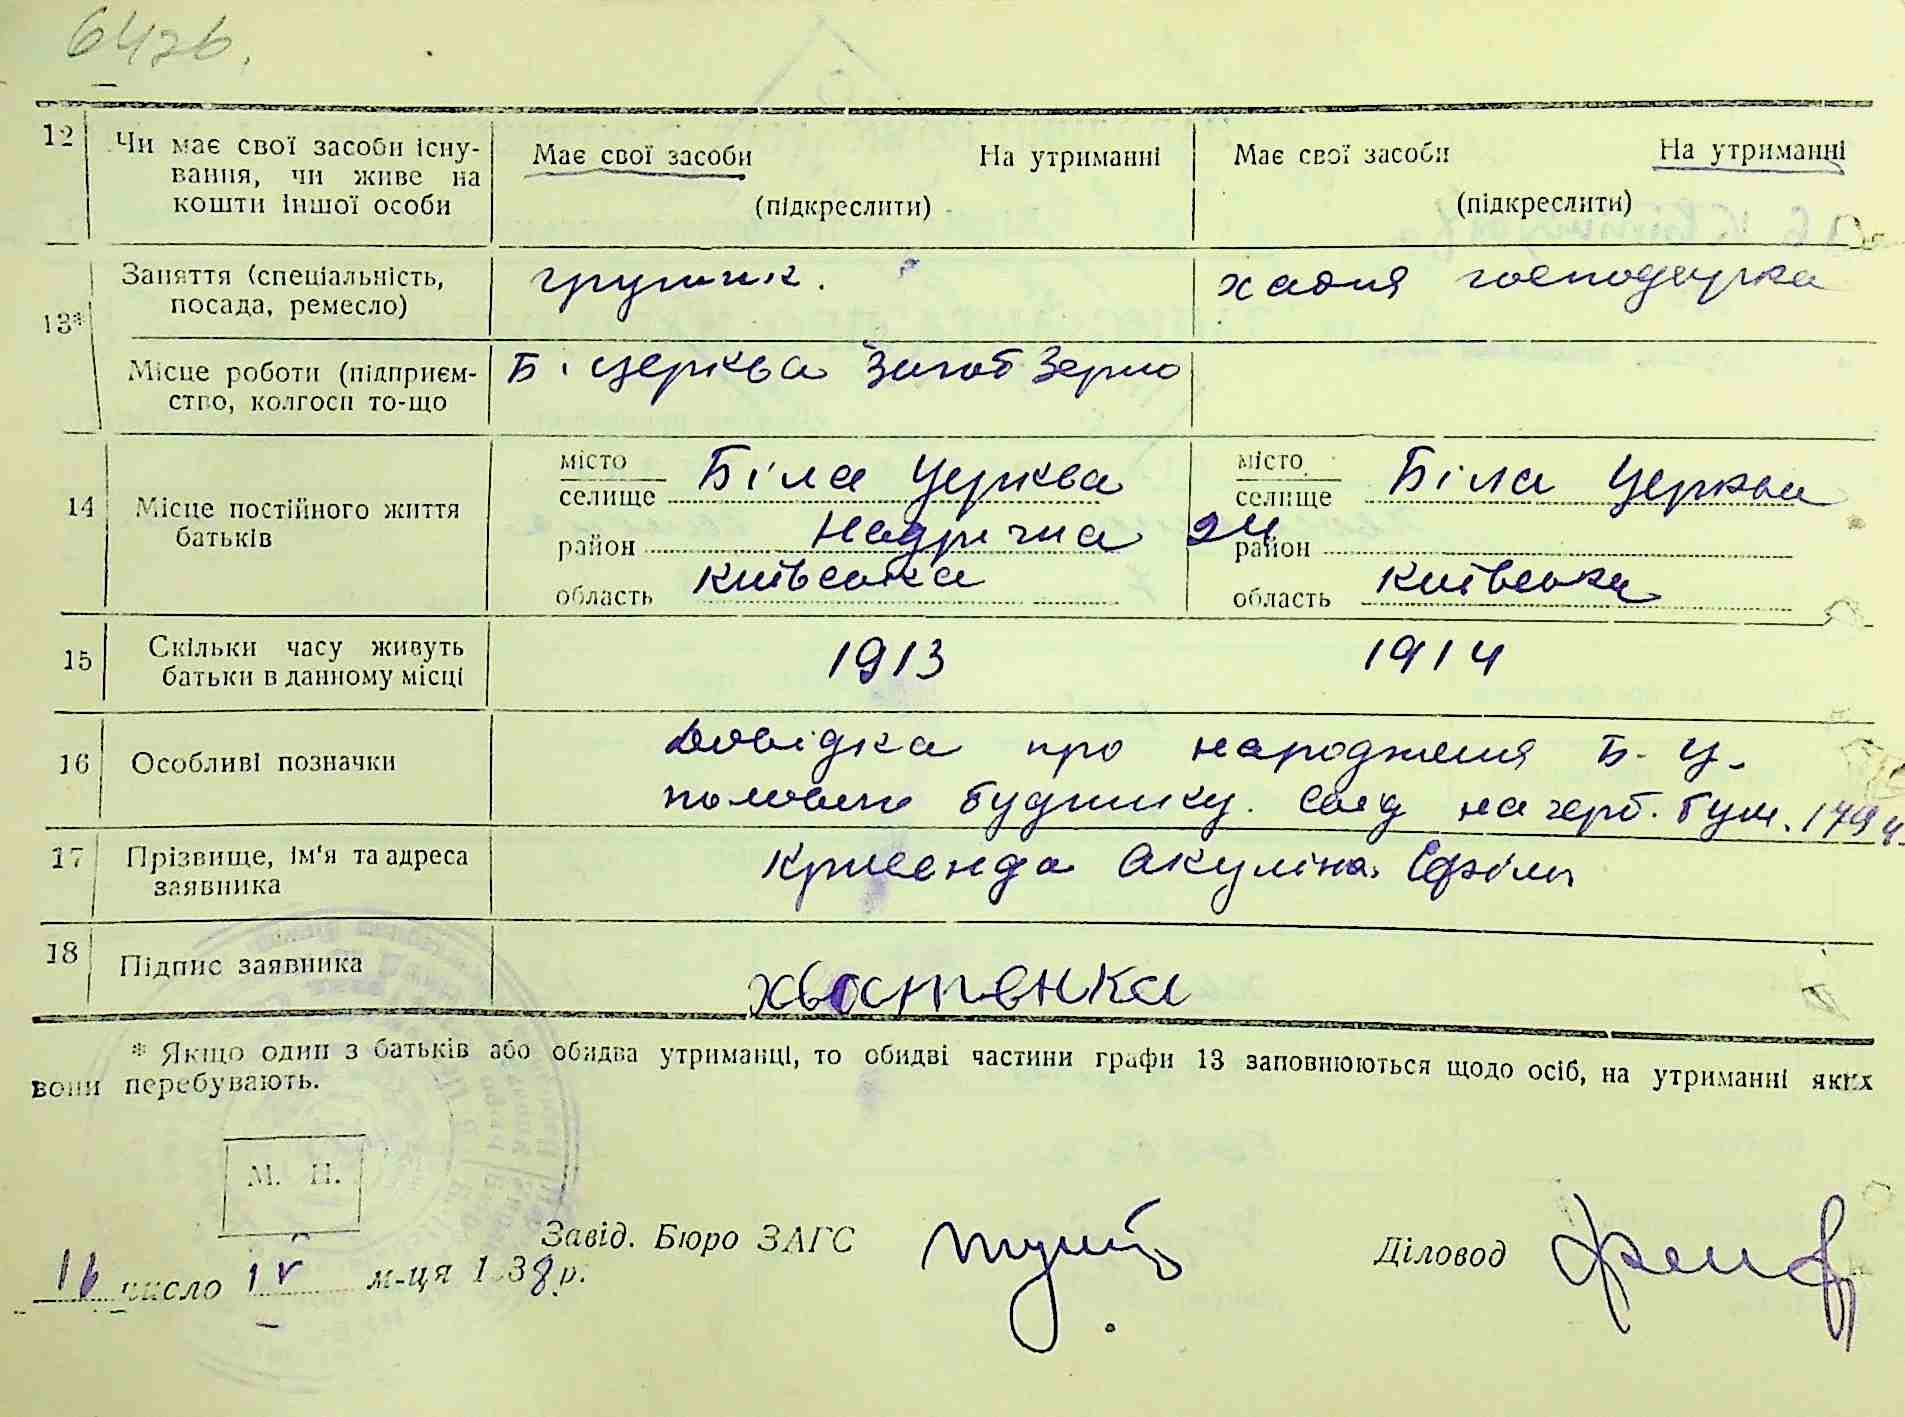 12 Чи має свої засоби існу-
вання, чи живе на
кошти іншої особи
Має свої засоби На утриманні
(підкреслити)
Має свої засоби На утриманні
(підкреслити)
13*
Заняття (спеціальність,
посада, ремесло)
грущик.
хатня господарка
Місце роботи (підприєм-
ство, колгосп то-що
Б. церква Загот Зерно
14 Місце постійного життя
батьків
місто
селище Біла Церква
район Надрична 24
область київська
місто
селище Біла Церква
район
область київська
15 Скільки часу живуть
батьки в данному місці
1913 1914
16 Особливі позначки
Довідка про народження Б. Ц.
будинку. на герб. бум.
17 Прізвище, ім'я та адреса
заявника
Акуліна
18 Підпис заявника
хвостенка
* Якщо один з батьків або обидва утриманці, то обидві частини графи 13 заповнюються щодо осіб, на утриманні яких
вони перебувають.
М. П.
16 число IV м-ця 1938 р.
Завід. Бюро ЗАГС
Діловод